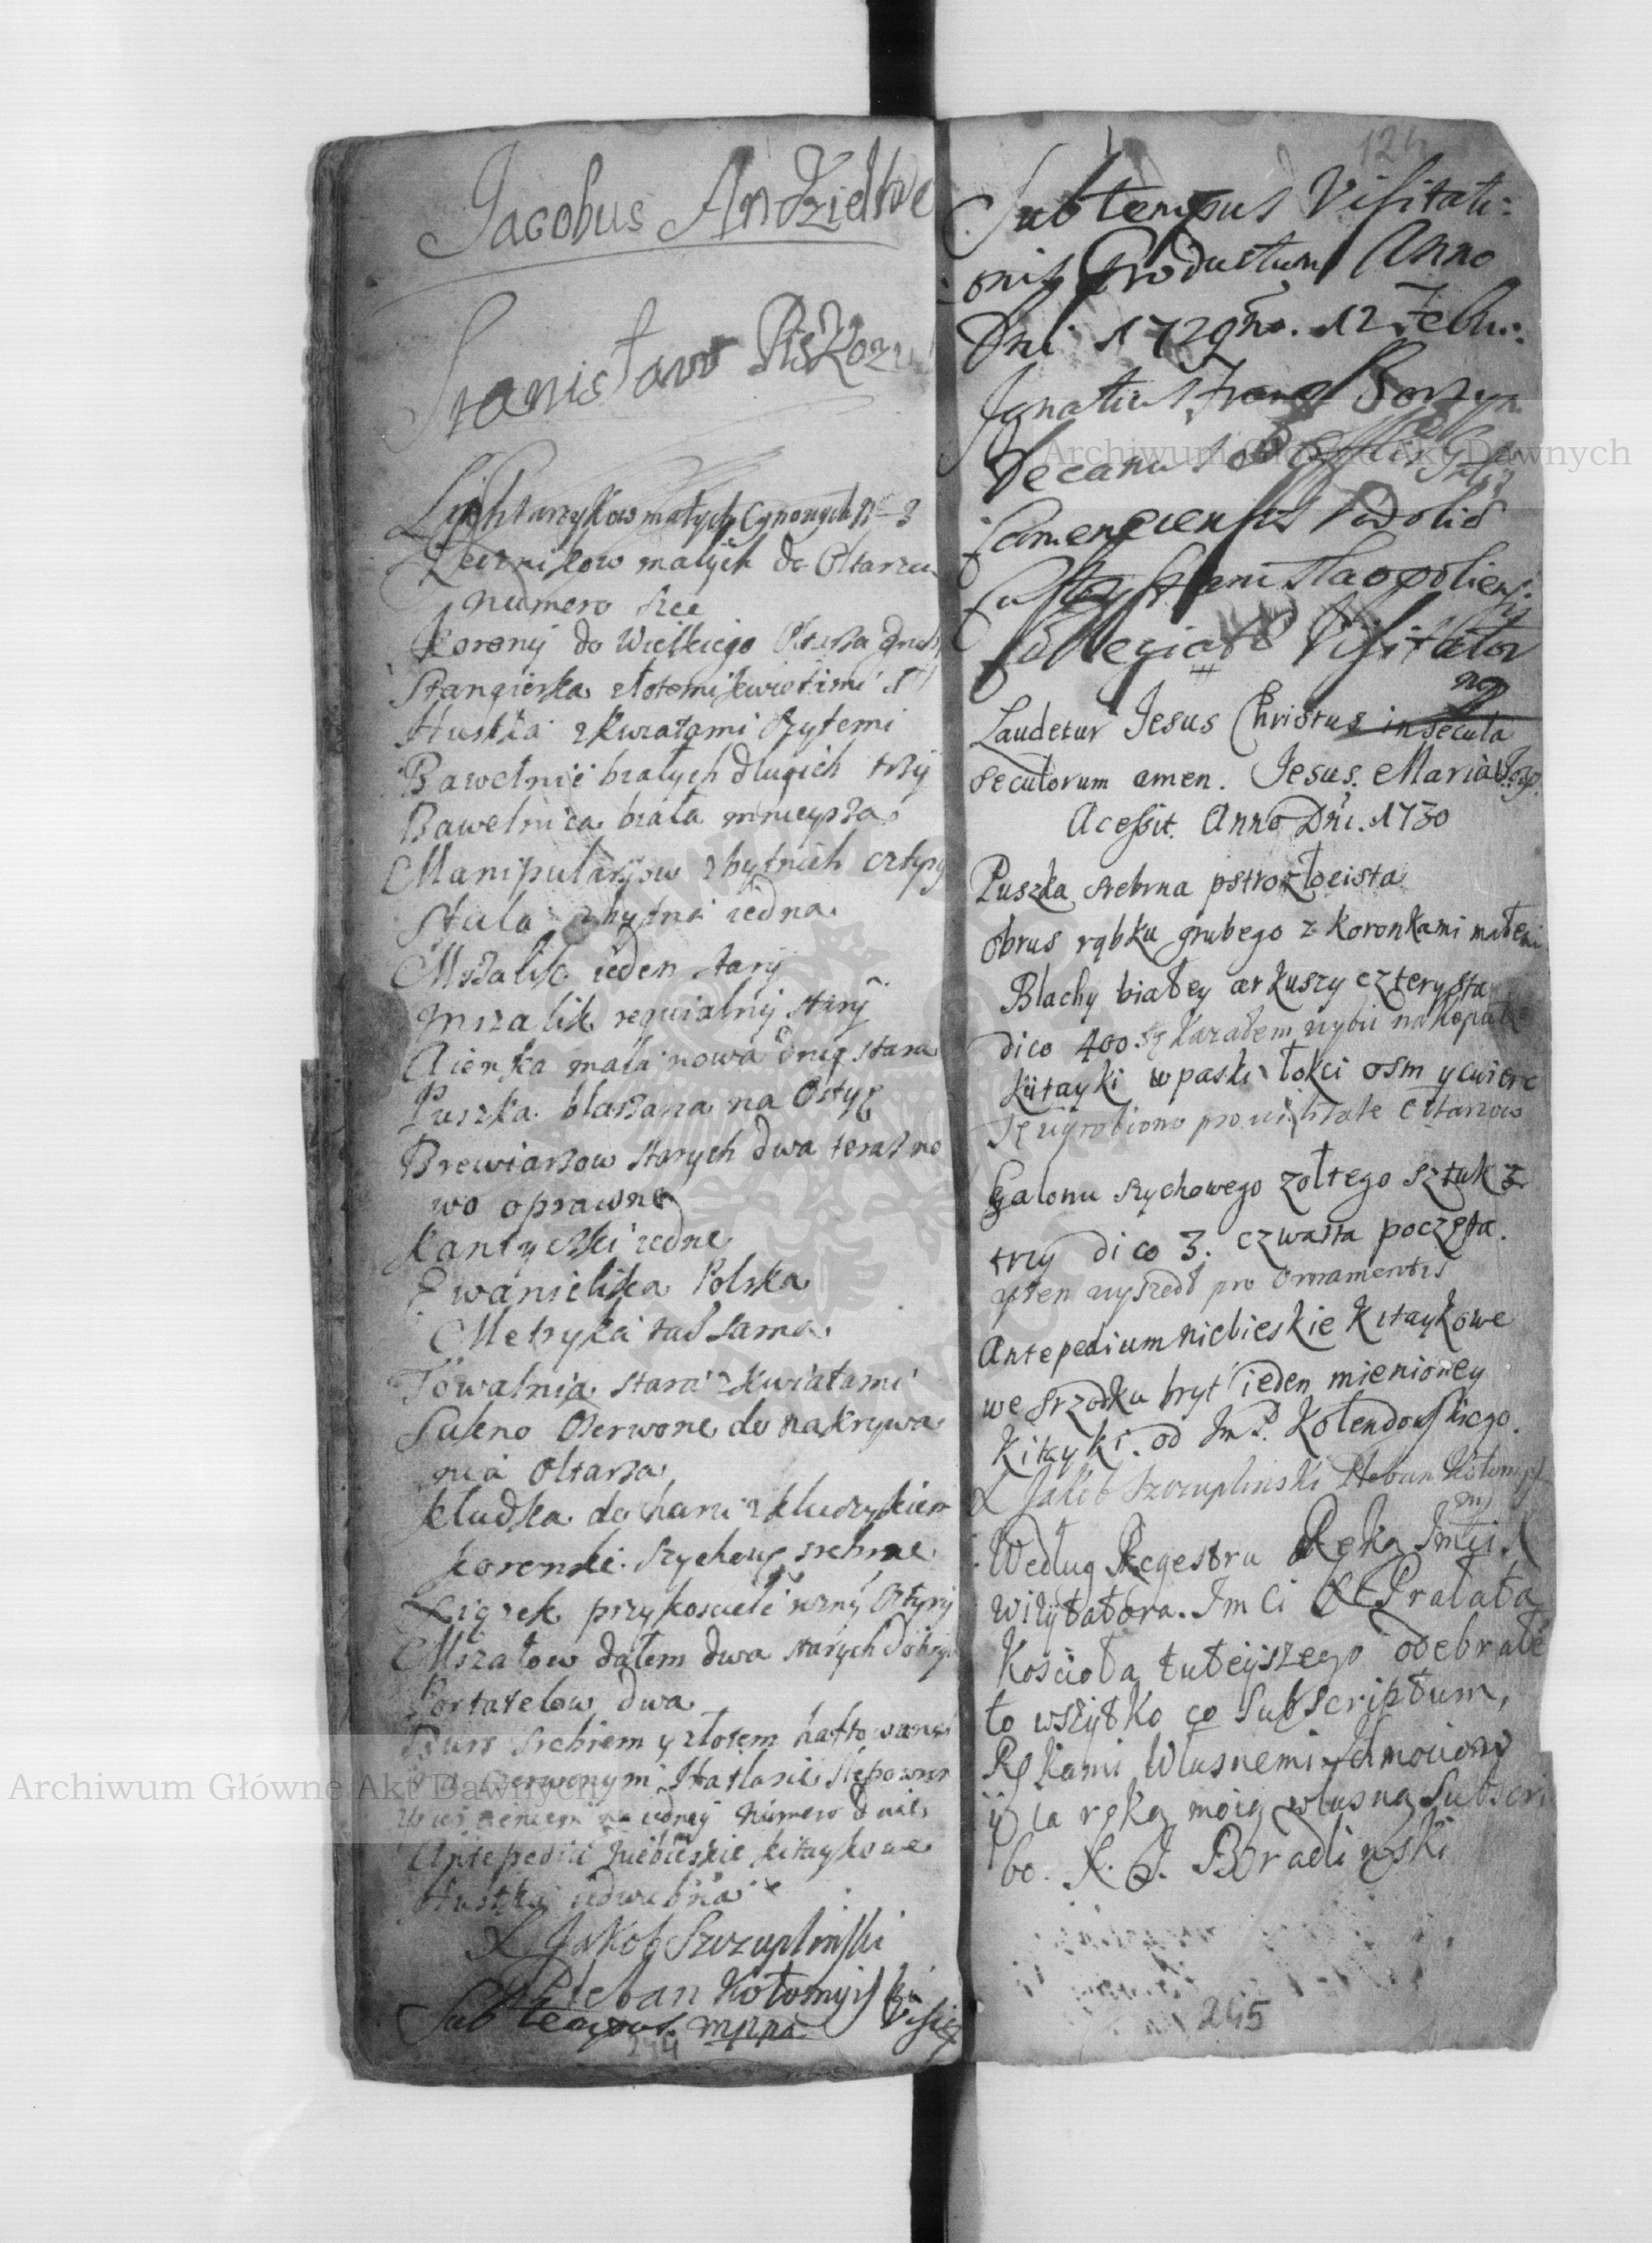 Jacobus Andzielowe
Stanisław Piskozu
Lichtarzykow małych Cynowych N 3
małych do Ołtarza
numero
Korony do Wielkiego Ołtarza
złotemi kwiatami
Hustka z kwiatami szytemi
Bawełnic białych długich trzy
Bawełnica biała mnieysza
Manipularzow zbytnich cztyry
Stula zbytnia iedna
Mszalik ieden stary
Mszalik requialny stary
mała nowa druga stara
Puszka blaszana na Ostyę
Brewiarzow starych dwa teraz no
wo oprawne
Kantyczki iedne
Ewanieliczka Polska
Metryka taż sama
Towalnia stara z kwiatami
Sukno Czerwone do nakrywa
nia Ołtarza
Kludka do z kluczykiem
Koronki Szychowe srebrne
przy kosciele cztyry
Mszałow dałem dwa starych dobrych
Portatelow dwa
Burs srebrem y złotem haftowanych
na czerwonym Hatłasie
iedney Numero dwie
Antepedia niebieskie kitaykowe
Hustka iedwabna
X Jakob Szczupliński
Pleban Kołomyiski
Sub tempus mppa Visit
244
124
Sub tempus Visitati:
onis Productum Anno
Dni 1729no. 12 Febr:
Ignatius Franc
Decanus
Camenecensis Podoliæ
Custos Stanislaopoliensis
Collegiatæ Visitator
Laudetur Jesus Christus in secula
seculorum amen. Jesus. Maria Jozef.
Acessit. Anno Dni. 1730
Puszka srebrna pstrozłocista
Obrus rąbku grubego z koronkami małemi
Blachy białey arkuszy czterysta
dico 400. Tę kazałem wybić na kopułę
Kitayki w paski łokci osm y cwierć
Tę wyrobiono pro Ołtarzow
Galonu szychowego zołtego sztuk 3.
trzy dico 3. czwarta poczęta.
y ten wyszedł pro Ornamentis
Antepedium niebieskie kitaykowe
we srzodku bryt ieden mienioney
Kitayki. od Jm P. Kolendowskiego.
X Jakob Szczupliński Pleban Kołomyi
Według Regestru Ręką Jmci X
wizytatora. Jm Ci X Prałata
Kościoła tuteyszego odebrałe
to wszytko co Subscriptum,
Rękami Własnemi Ichmociow
y ia ręką moią własną Subscri
bo. X. J. Bradliński
245
Archiwum Główne Akt Dawnych
Archiwum Główne Akt Dawnych